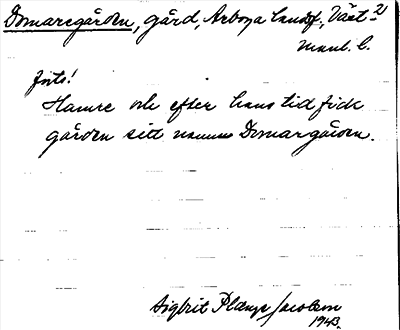 Domaregården, gård, Arboga landsf., Väst- 2)
manl. l.
forts!
Hamre och efter hans tid fick
gården sitt namn Domargården.
Sigbrit Plænge Jacobson
1943.